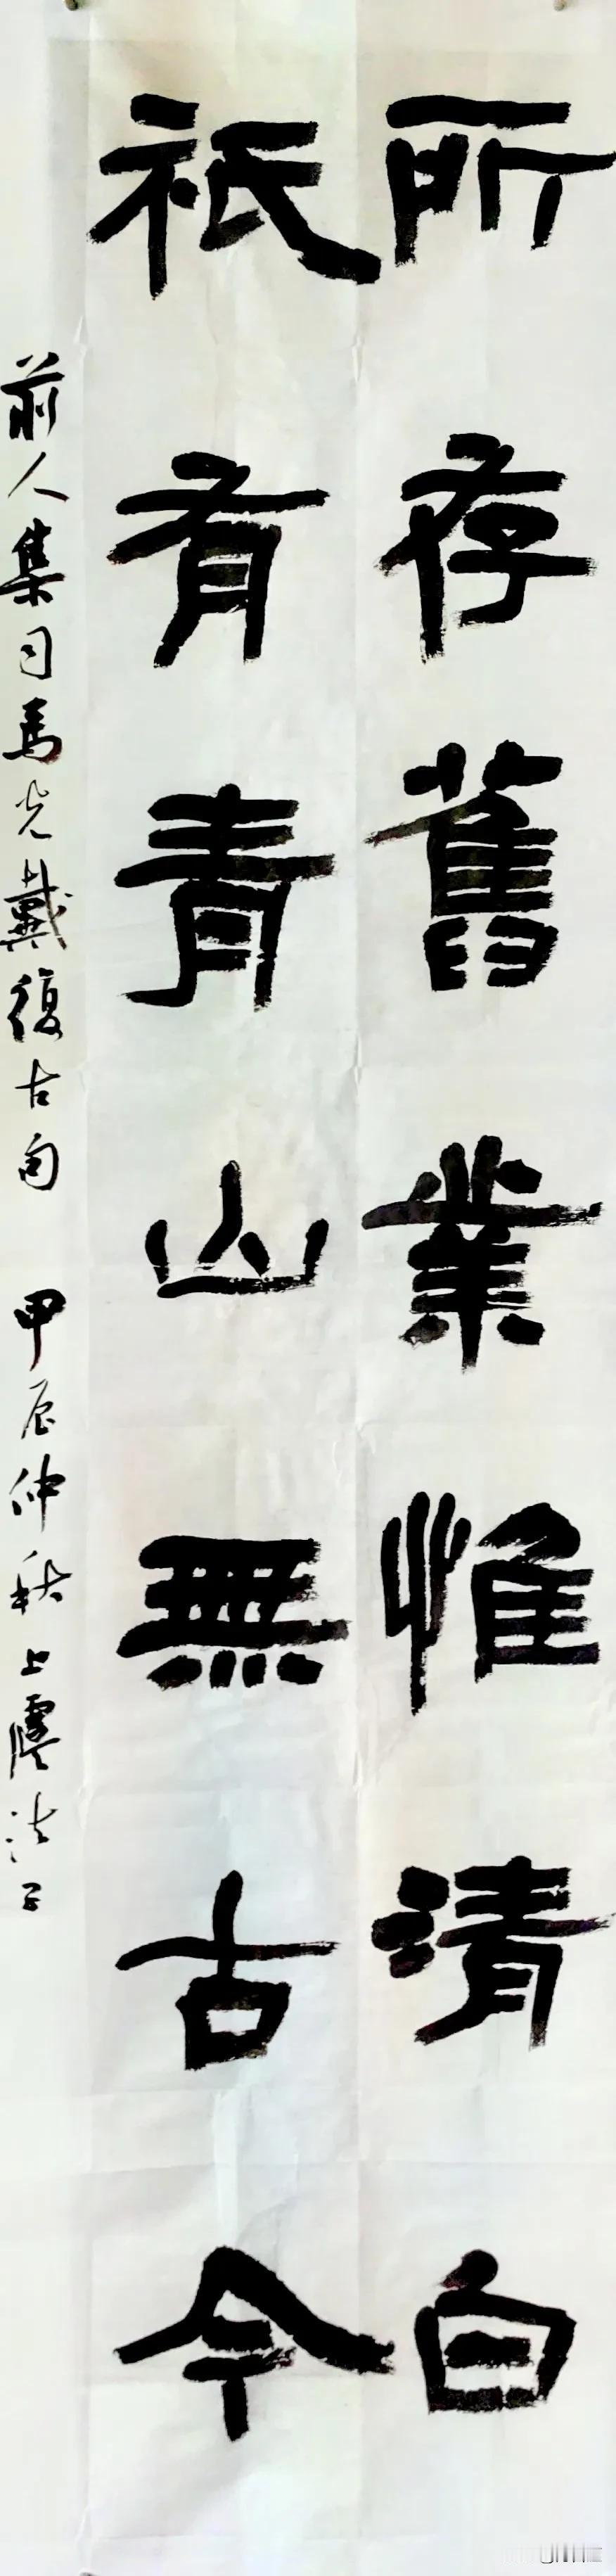 所存舊業惟清白
祇有青山無古今
前人集司馬光戴復古句 甲辰仲秋上虞法子